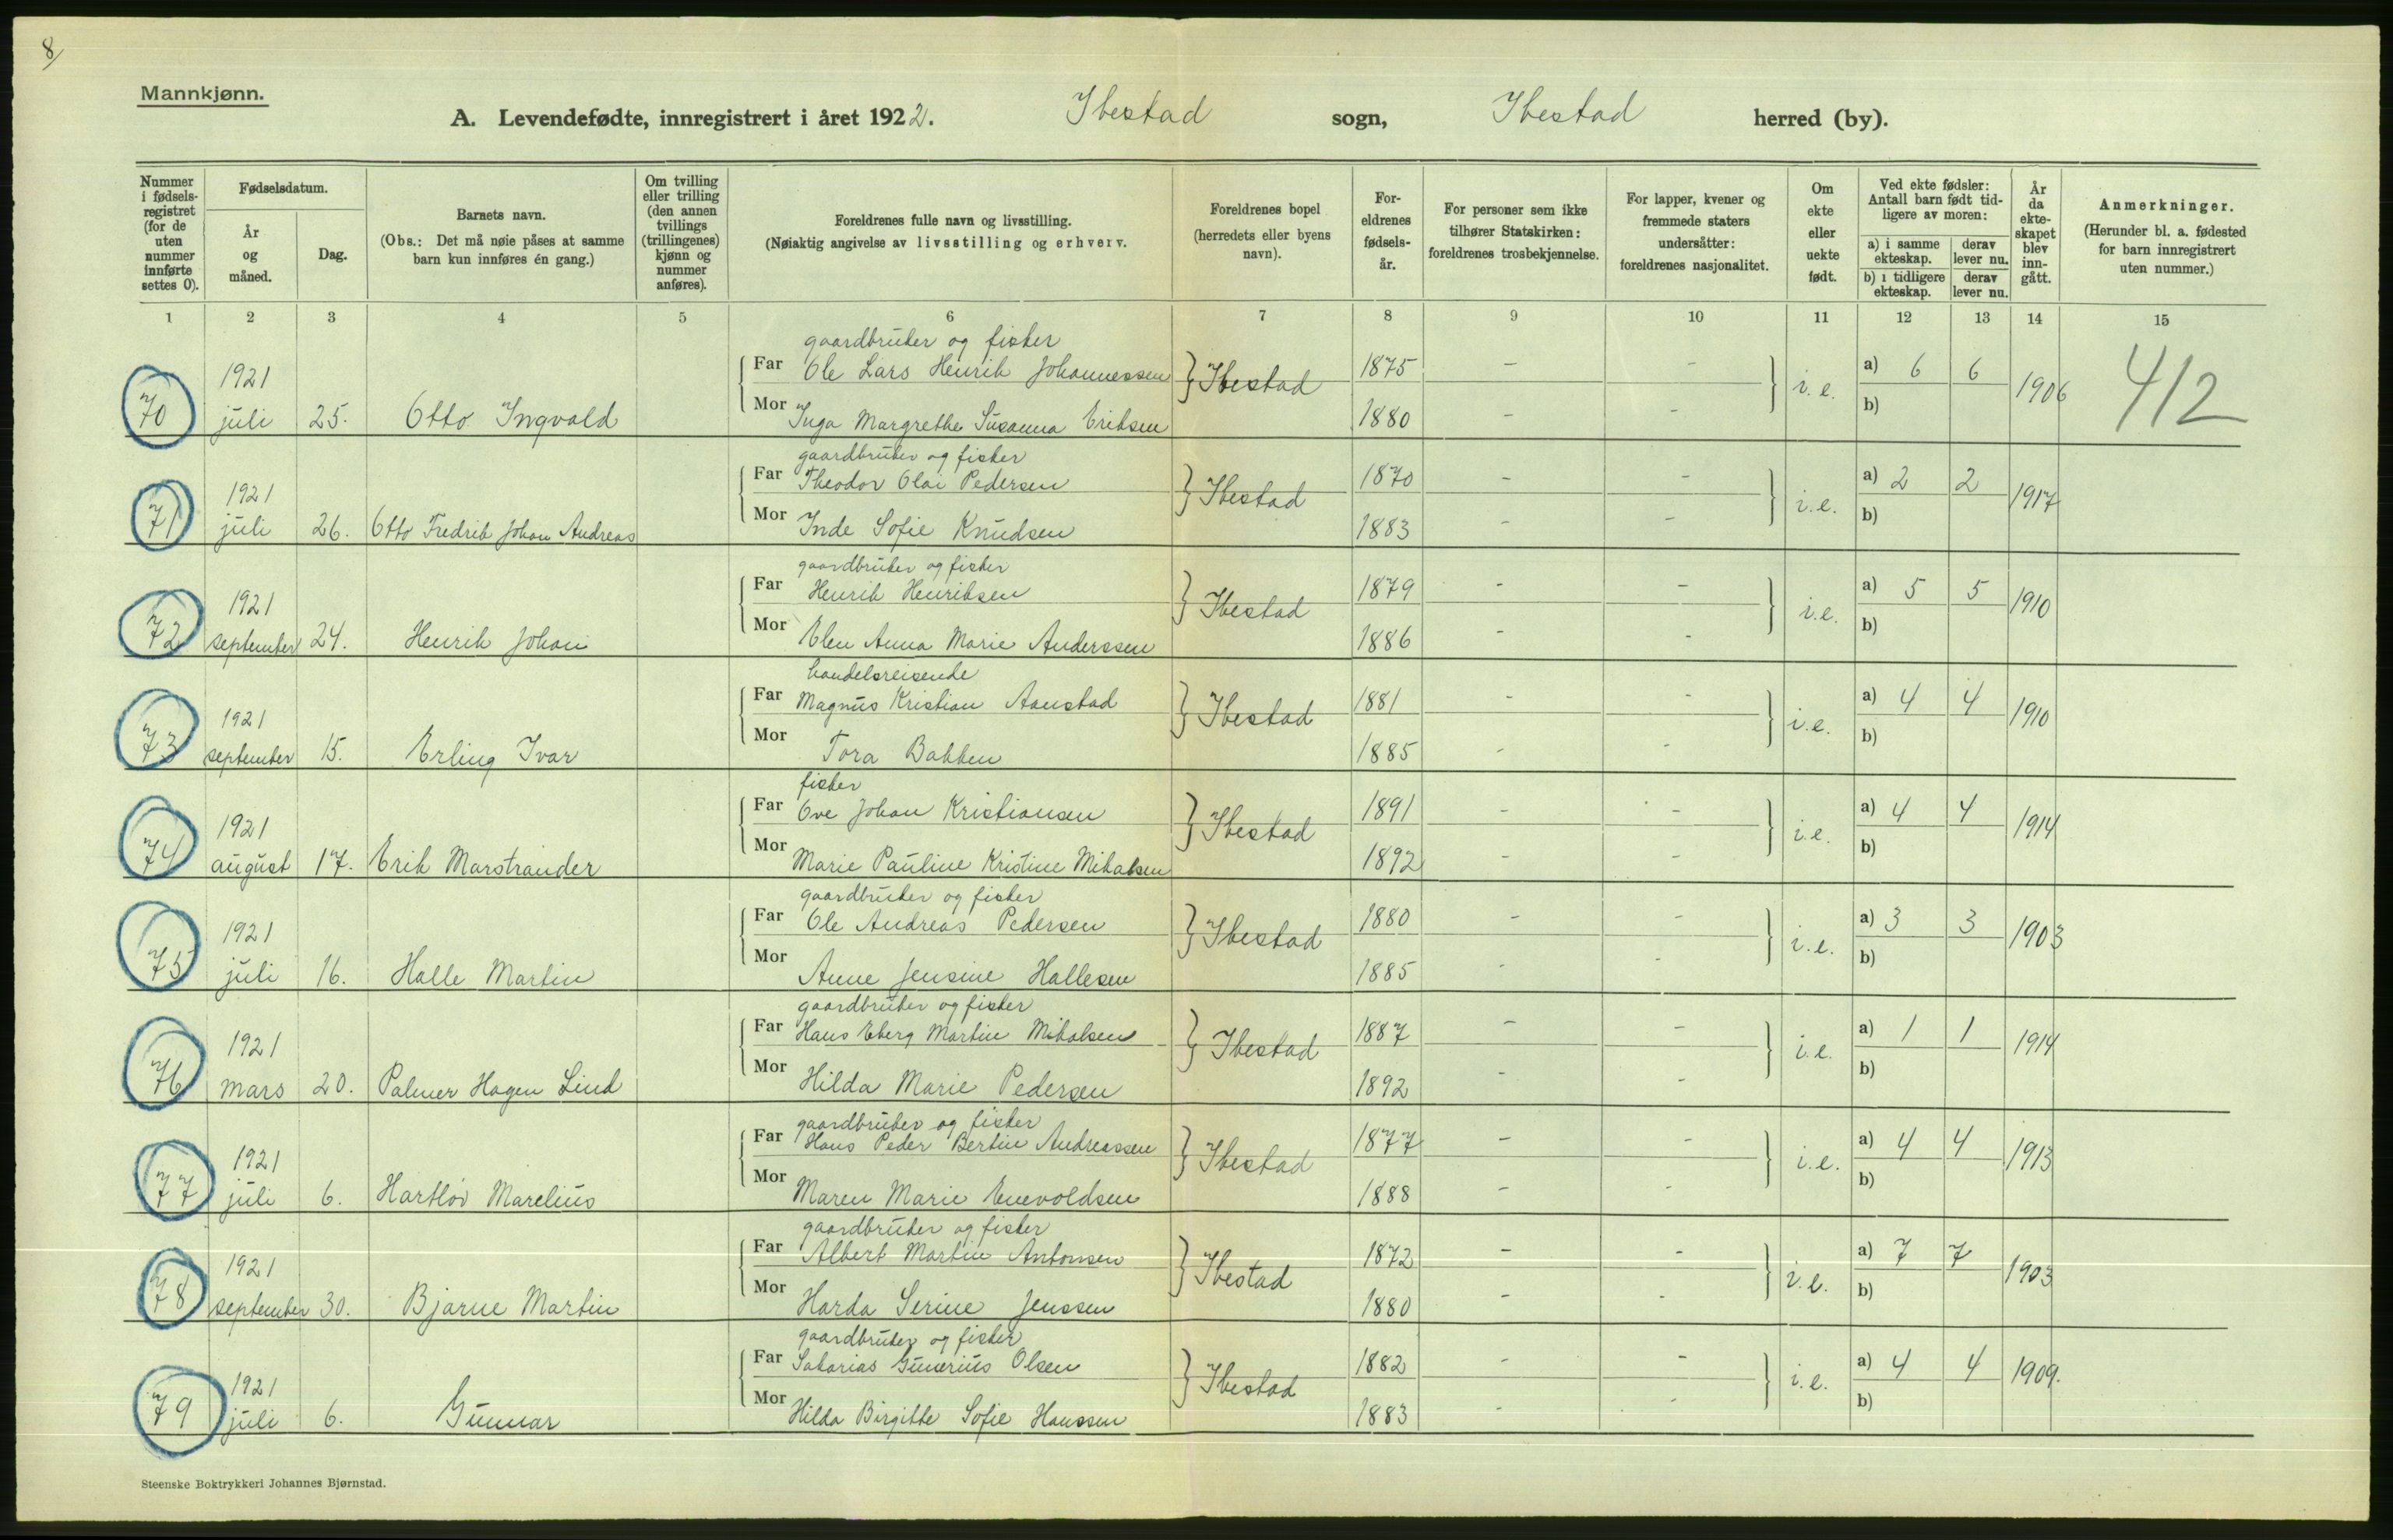 8/
Mannkjønn.
A. Levendefødte, innregistrert i året 1922. Ibestad sogn, Ibestad herred (by).
Nummer i fødsels-registret (for de uten nummer innførte settes 0).
Fødselsdatum.
År og måned.
Dag.
Barnets navn.
(Obs.: Det må nøie påses at samme barn kun innføres én gang.)
Om tvilling eller trilling (den annen tvillings (trillingenes) kjønn og nummer anføres).
Foreldrenes fulle navn og livsstilling.
(Nøiaktig angivelse av livsstilling og erhverv.
Foreldrenes bopel (herredets eller byens navn).
For-eldrenes fødsels-år.
For personer som ikke tilhører Statskirken: foreldrenes trosbekjennelse.
For lapper, kvener og fremmede staters undersåtter: foreldrenes nasjonalitet.
Om ekte eller uekte født.
Ved ekte fødsler: Antall barn født tid-ligere av moren:
a) i samme ekteskap.
derav lever nu.
b) i tidligere ekteskap.
derav lever nu.
År da ekte-skapet blev inn-gått.
Anmerkninger.
(Herunder bl. a. fødested for barn innregistrert uten nummer.)
1 2 3 4 5 6 7 8 9 10 11 12 13 14 15
gaardbruker og fisker
1921 Far Ole Lars Henrik Johannessen } Ibestad 1875 - - } i.e. a) 6 6 1906 412
70 juli 25. Otto Ingvald Mor Inga Margrethe Susanna Eriksen 1880 - - b)
gaardbruker og fisker
1921 Far Theodor Olai Pedersen } Ibestad 1870 - - } i.e. a) 2 2 1917
71 juli 26. Otto Fredrik Johan Andreas Mor Inde Sofie Knudsen 1883 - - b)
gaardbruker og fisker
1921 Far Henrik Henriksen } Ibestad 1879 - - } i.e. a) 5 5 1910
72 september 24. Henrik Johan Mor Elen Anna Marie Anderssen 1886 - - b)
handelsreisende
1921 Far Magnus Kristian Aanstad } Ibestad 1881 - - } i.e. a) 4 4 1910
73 september 15. Erling Ivar Mor Tora Bakken 1885 - - b)
fisker
1921 Far Ove Johan Kristiansen } Ibestad 1891 - - } i.e. a) 4 4 1914
74 august 17. Erik Marstrander Mor Marie Pauline Kristine Mikalsen 1892 - - b)
gaardbruker og fisker
1921 Far Ole Andreas Pedersen } Ibestad 1880 - - } i.e. a) 3 3 1903
75 juli 16. Halle Martin Mor Anne Jensine Hallesen 1885 - - b)
gaardbruker og fisker
1921 Far Hans Eberg Martin Mikalsen } Ibestad 1887 - - } i.e. a) 1 1 1914
76 mars 20. Palmer Hagen Lind Mor Hilda Marie Pedersen 1892 - - b)
gaardbruker og fisker
1921 Far Hans Peder Bertin Andreassen } Ibestad 1877 - - } i.e. a) 4 4 1913
77 juli 6. Hartløv Marelius Mor Maren Marie Enevoldsen 1888 - - b)
gaardbruker og fisker
1921 Far Albert Martin Antonsen } Ibestad 1872 - - } i.e. a) 7 7 1903
78 september 30. Bjarne Martin Mor Harda Serine Jenssen 1880 - - b)
gaardbruker og fisker
1921 Far Sakarias Gunerius Olsen } Ibestad 1882 - - } i.e. a) 4 4 1909.
79 juli 6. Gunnar Mor Hilda Birgitte Sofie Hanssen 1883 - - b)
Steenske Boktrykkeri Johannes Bjørnstad.